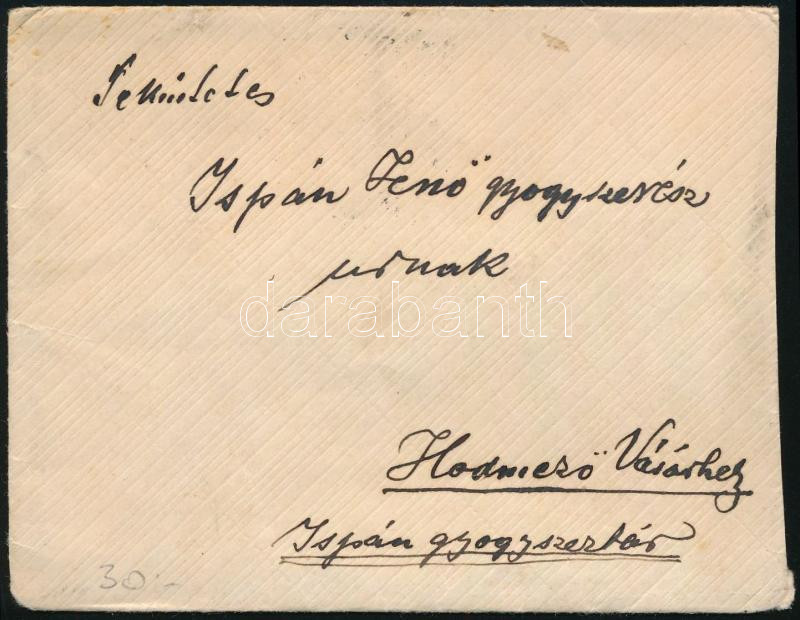 Tekintetes
Ispán Jenő gyogyszerész
urnak
darabanth
Hodmező Vásárhely
Ispán gyogyszertár
30.-